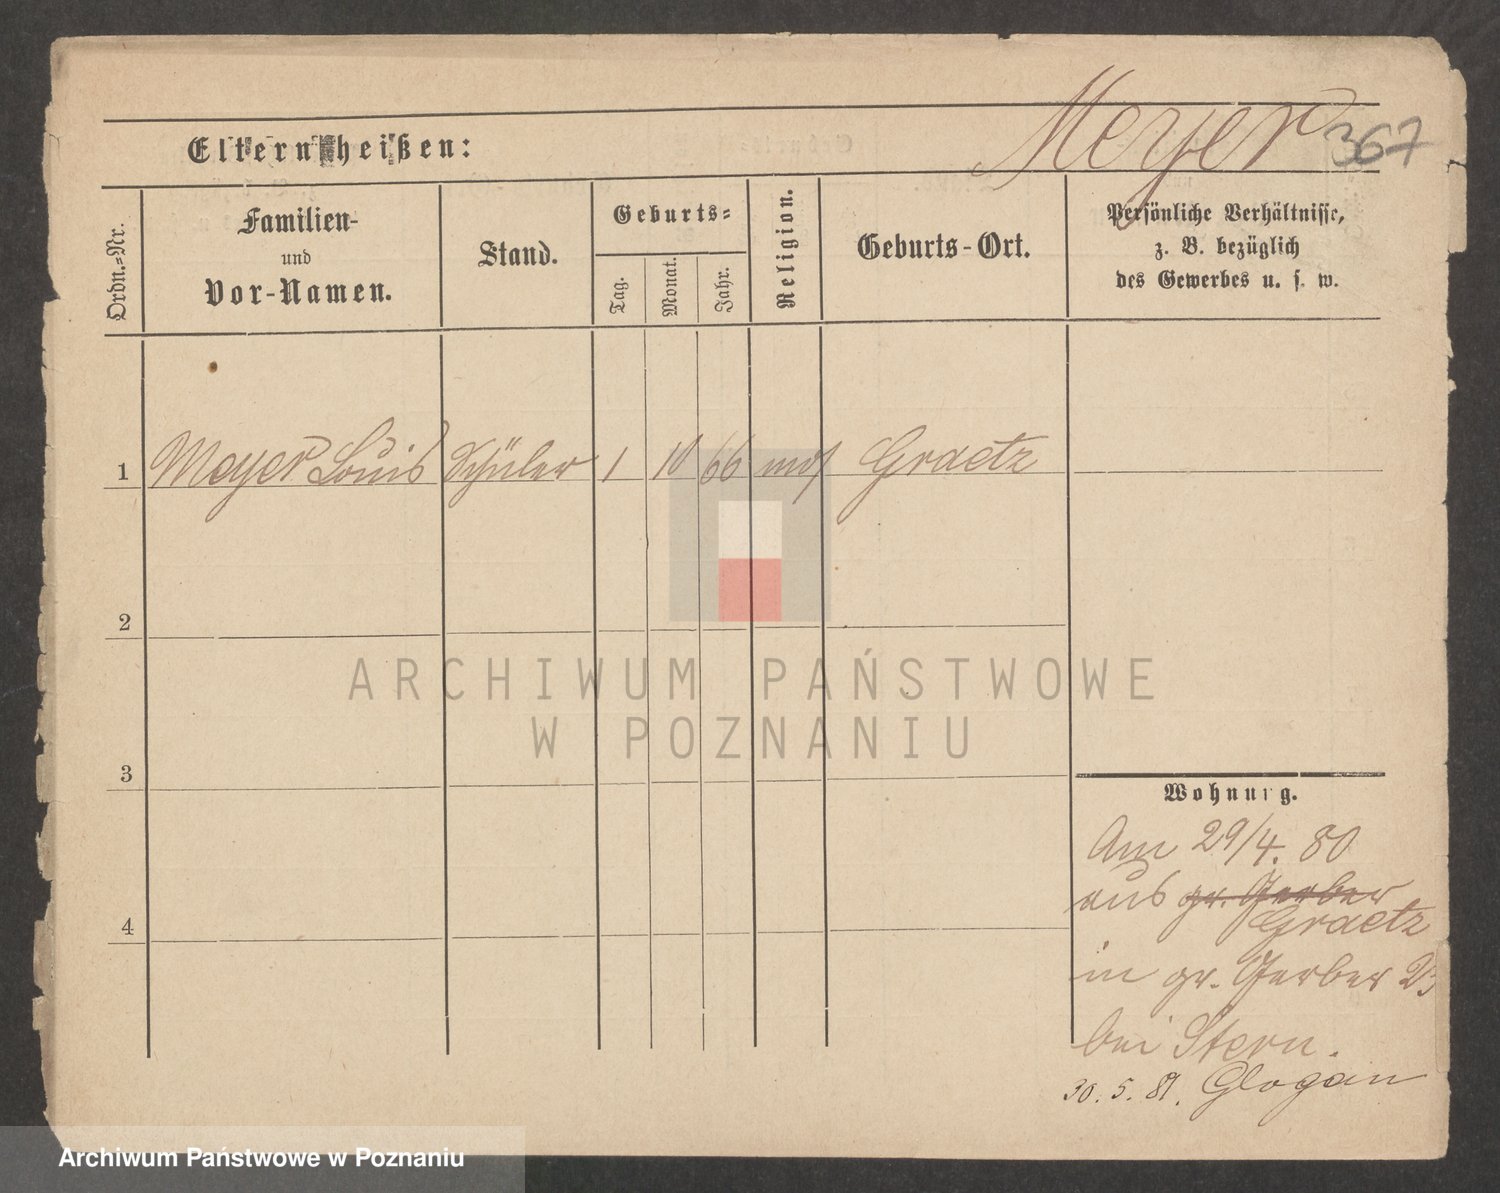 Meyer 367
Eltern heißen:
Ordn.-Nr.
Familien-
und
Vor-Namen.
Stand.
Geburts-
Tag.
Monat.
Jahr.
Religion.
Geburts-Ort.
Persönliche Verhältnisse,
z. B. bezüglich
des Gewerbes u. s. w.
1 Meyer Louis Schüler 1 10 66 mos Graetz
2
3
4
ARCHIWUM PAŃSTWOWE
W POZNANIU
Wohnung.
Am 29/4. 80
aus gr. Gerber
Graetz
in gr. Gerber
bei Stern.
30. 5. 81. Glogau
Archiwum Państwowe w Poznaniu